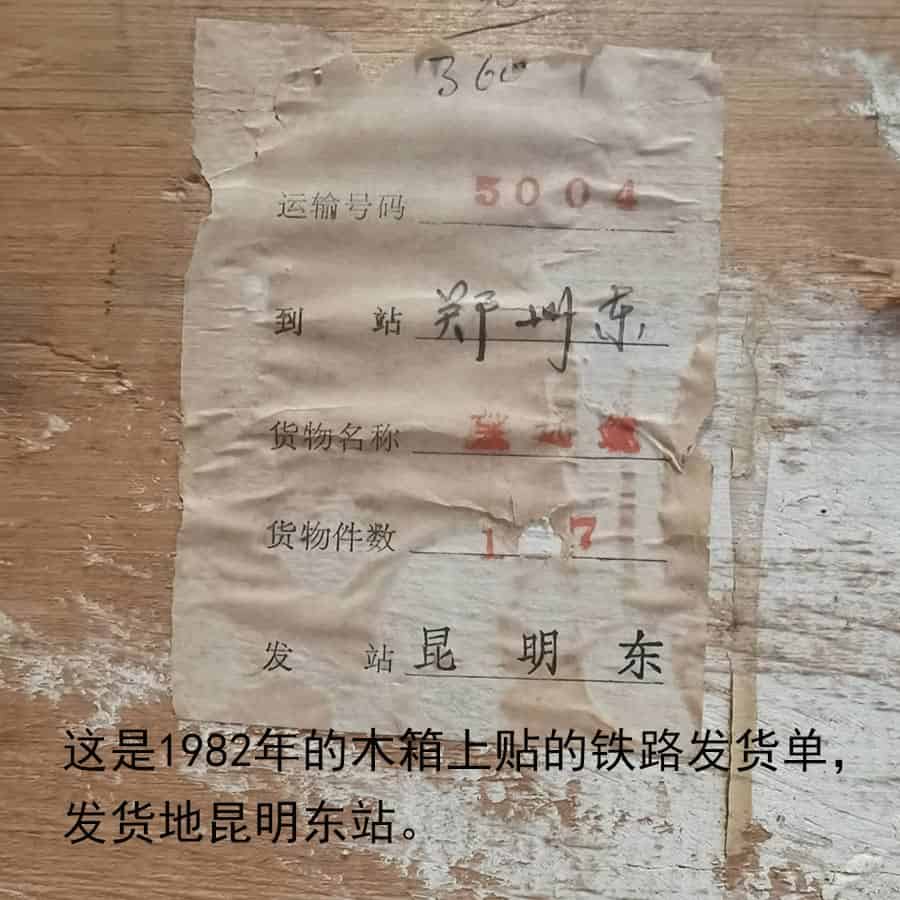 360
运输号码 5004
到站 郑州东
货物名称
货物件数 1 7
发站 昆明东
这是1982年的木箱上贴的铁路发货单，
发货地昆明东站。